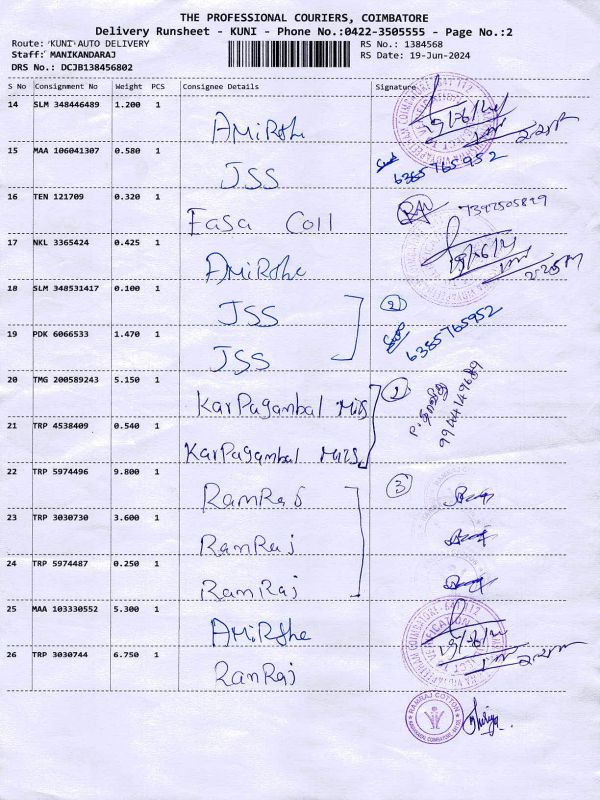 THE PROFESSIONAL COURIERS, COIMBATORE
Delivery Runsheet - KUNI - Phone No.:0422-3505555 - Page No.:2
Route: KUNI AUTO DELIVERY RS No.: 1384568
Staff: MANIKANDARAJ RS Date: 19-Jun-2024
DRS No.: DCJB138456802
S No Consignment No Weight PCS Consignee Details Signature
14 SLM 348446489 1.200 1
AMiRshe 19/6/24
15 MAA 106041307 0.580 1
JSS 6385765952
16 TEN 121709 0.320 1
Easa Coll 7397505829
17 NKL 3365424 0.425 1
AMiRshe
18 SLM 348531417 0.100 1
JSS 2
19 PDK 6066533 1.470 1
JSS 6385765952
20 TMG 200589243 5.150 1
KarPagambal Mills 2
21 TRP 4538409 0.540 1
KarPagambal Mills
22 TRP 5974496 9.800 1
RamRaj 3
23 TRP 3030730 3.600 1
RamRaj
24 TRP 5974487 0.250 1
RamRaj
25 MAA 103330552 5.300 1
AMiRshe
26 TRP 3030744 6.750 1
RamRaj
RAMRAJ COTTON